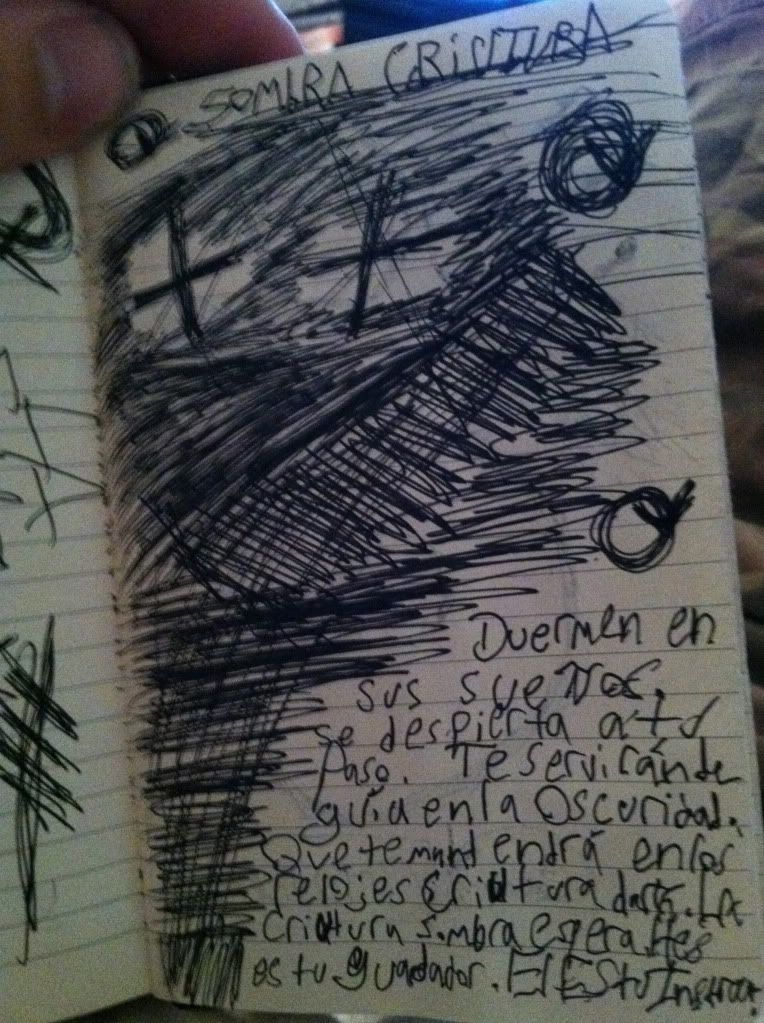 SOMBRA CRIATURA
Duermen en
sus sueños,
se despierta a tu
Paso. Te servirán de
guía en la Oscuridad.
Que te mantendrá en los
relojes Criatura dark. La
Criatura sombra espera.
es tu guardador. El Es tu